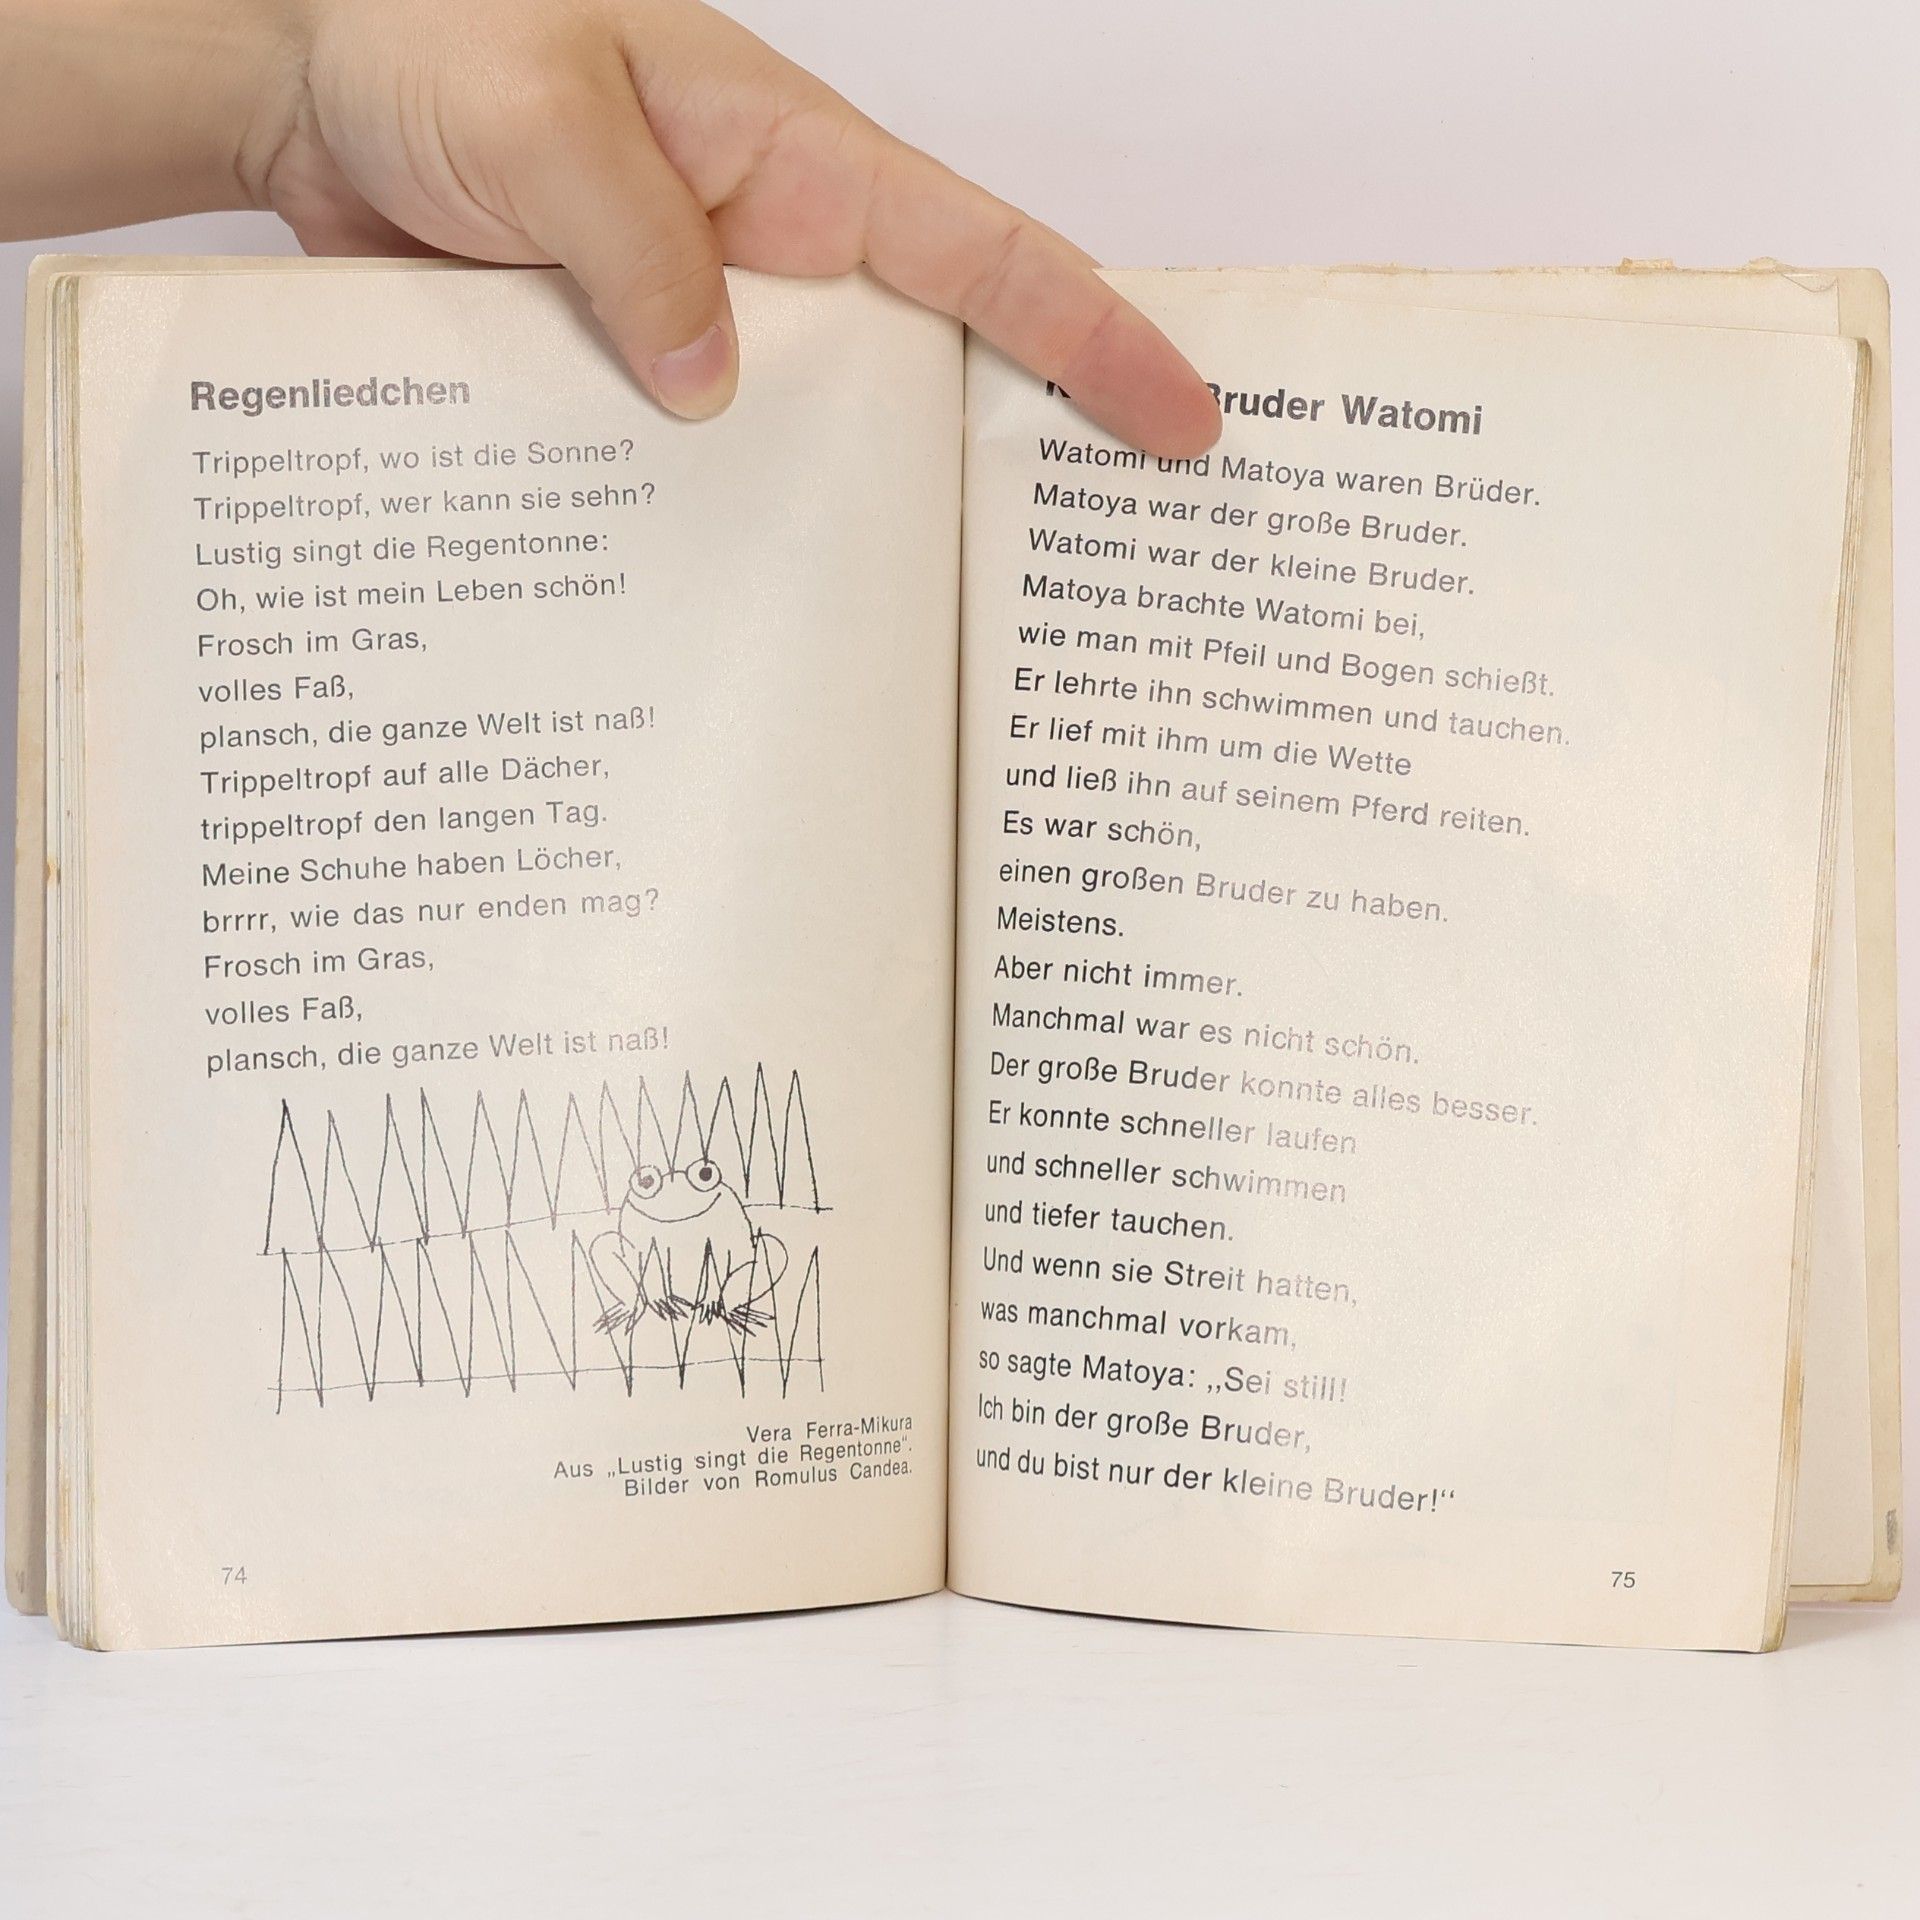 Regenliedchen
Trippeltropf, wo ist die Sonne?
Trippeltropf, wer kann sie sehn?
Lustig singt die Regentonne:
Oh, wie ist mein Leben schön!
Frosch im Gras,
volles Faß,
plansch, die ganze Welt ist naß!
Trippeltropf auf alle Dächer,
trippeltropf den langen Tag.
Meine Schuhe haben Löcher,
brrrr, wie das nur enden mag?
Frosch im Gras,
volles Faß,
plansch, die ganze Welt ist naß!
Vera Ferra-Mikura
Aus „Lustig singt die Regentonne“.
Bilder von Romulus Candea.
74
Bruder Watomi
Watomi und Matoya waren Brüder.
Matoya war der große Bruder.
Watomi war der kleine Bruder.
Matoya brachte Watomi bei,
wie man mit Pfeil und Bogen schießt.
Er lehrte ihn schwimmen und tauchen.
Er lief mit ihm um die Wette
und ließ ihn auf seinem Pferd reiten.
Es war schön,
einen großen Bruder zu haben.
Meistens.
Aber nicht immer.
Manchmal war es nicht schön.
Der große Bruder konnte alles besser.
Er konnte schneller laufen
und schneller schwimmen
und tiefer tauchen.
Und wenn sie Streit hatten,
was manchmal vorkam,
so sagte Matoya: „Sei still!
Ich bin der große Bruder,
und du bist nur der kleine Bruder!“
75